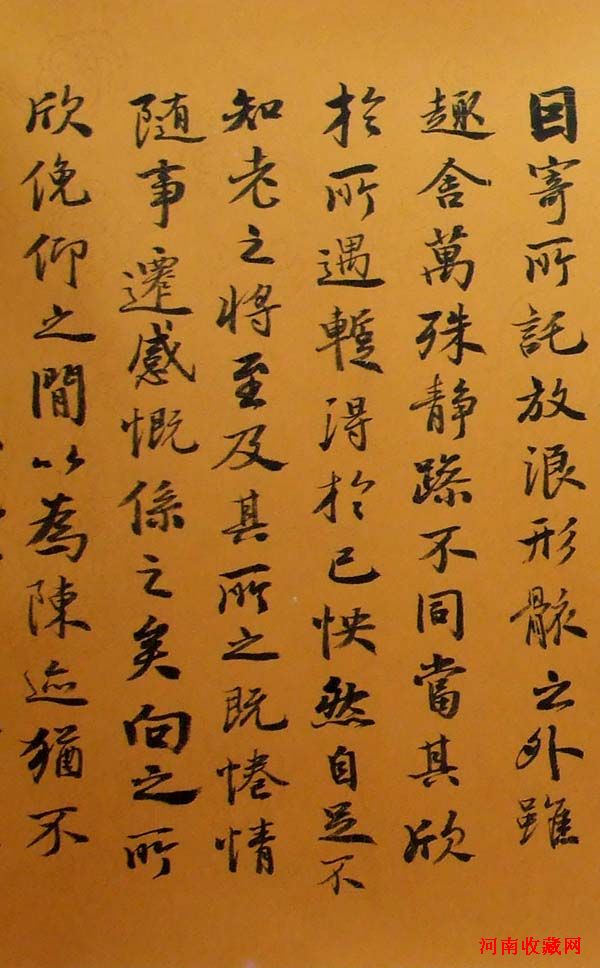 因寄所託放浪形骸之外雖
趣舍萬殊静躁不同當其欣
於所遇蹔得於己怏然自足不
知老之將至及其所之既惓情
隨事遷感慨係之矣向之所
欣俛仰之閒以為陳迹猶不
河南收藏网